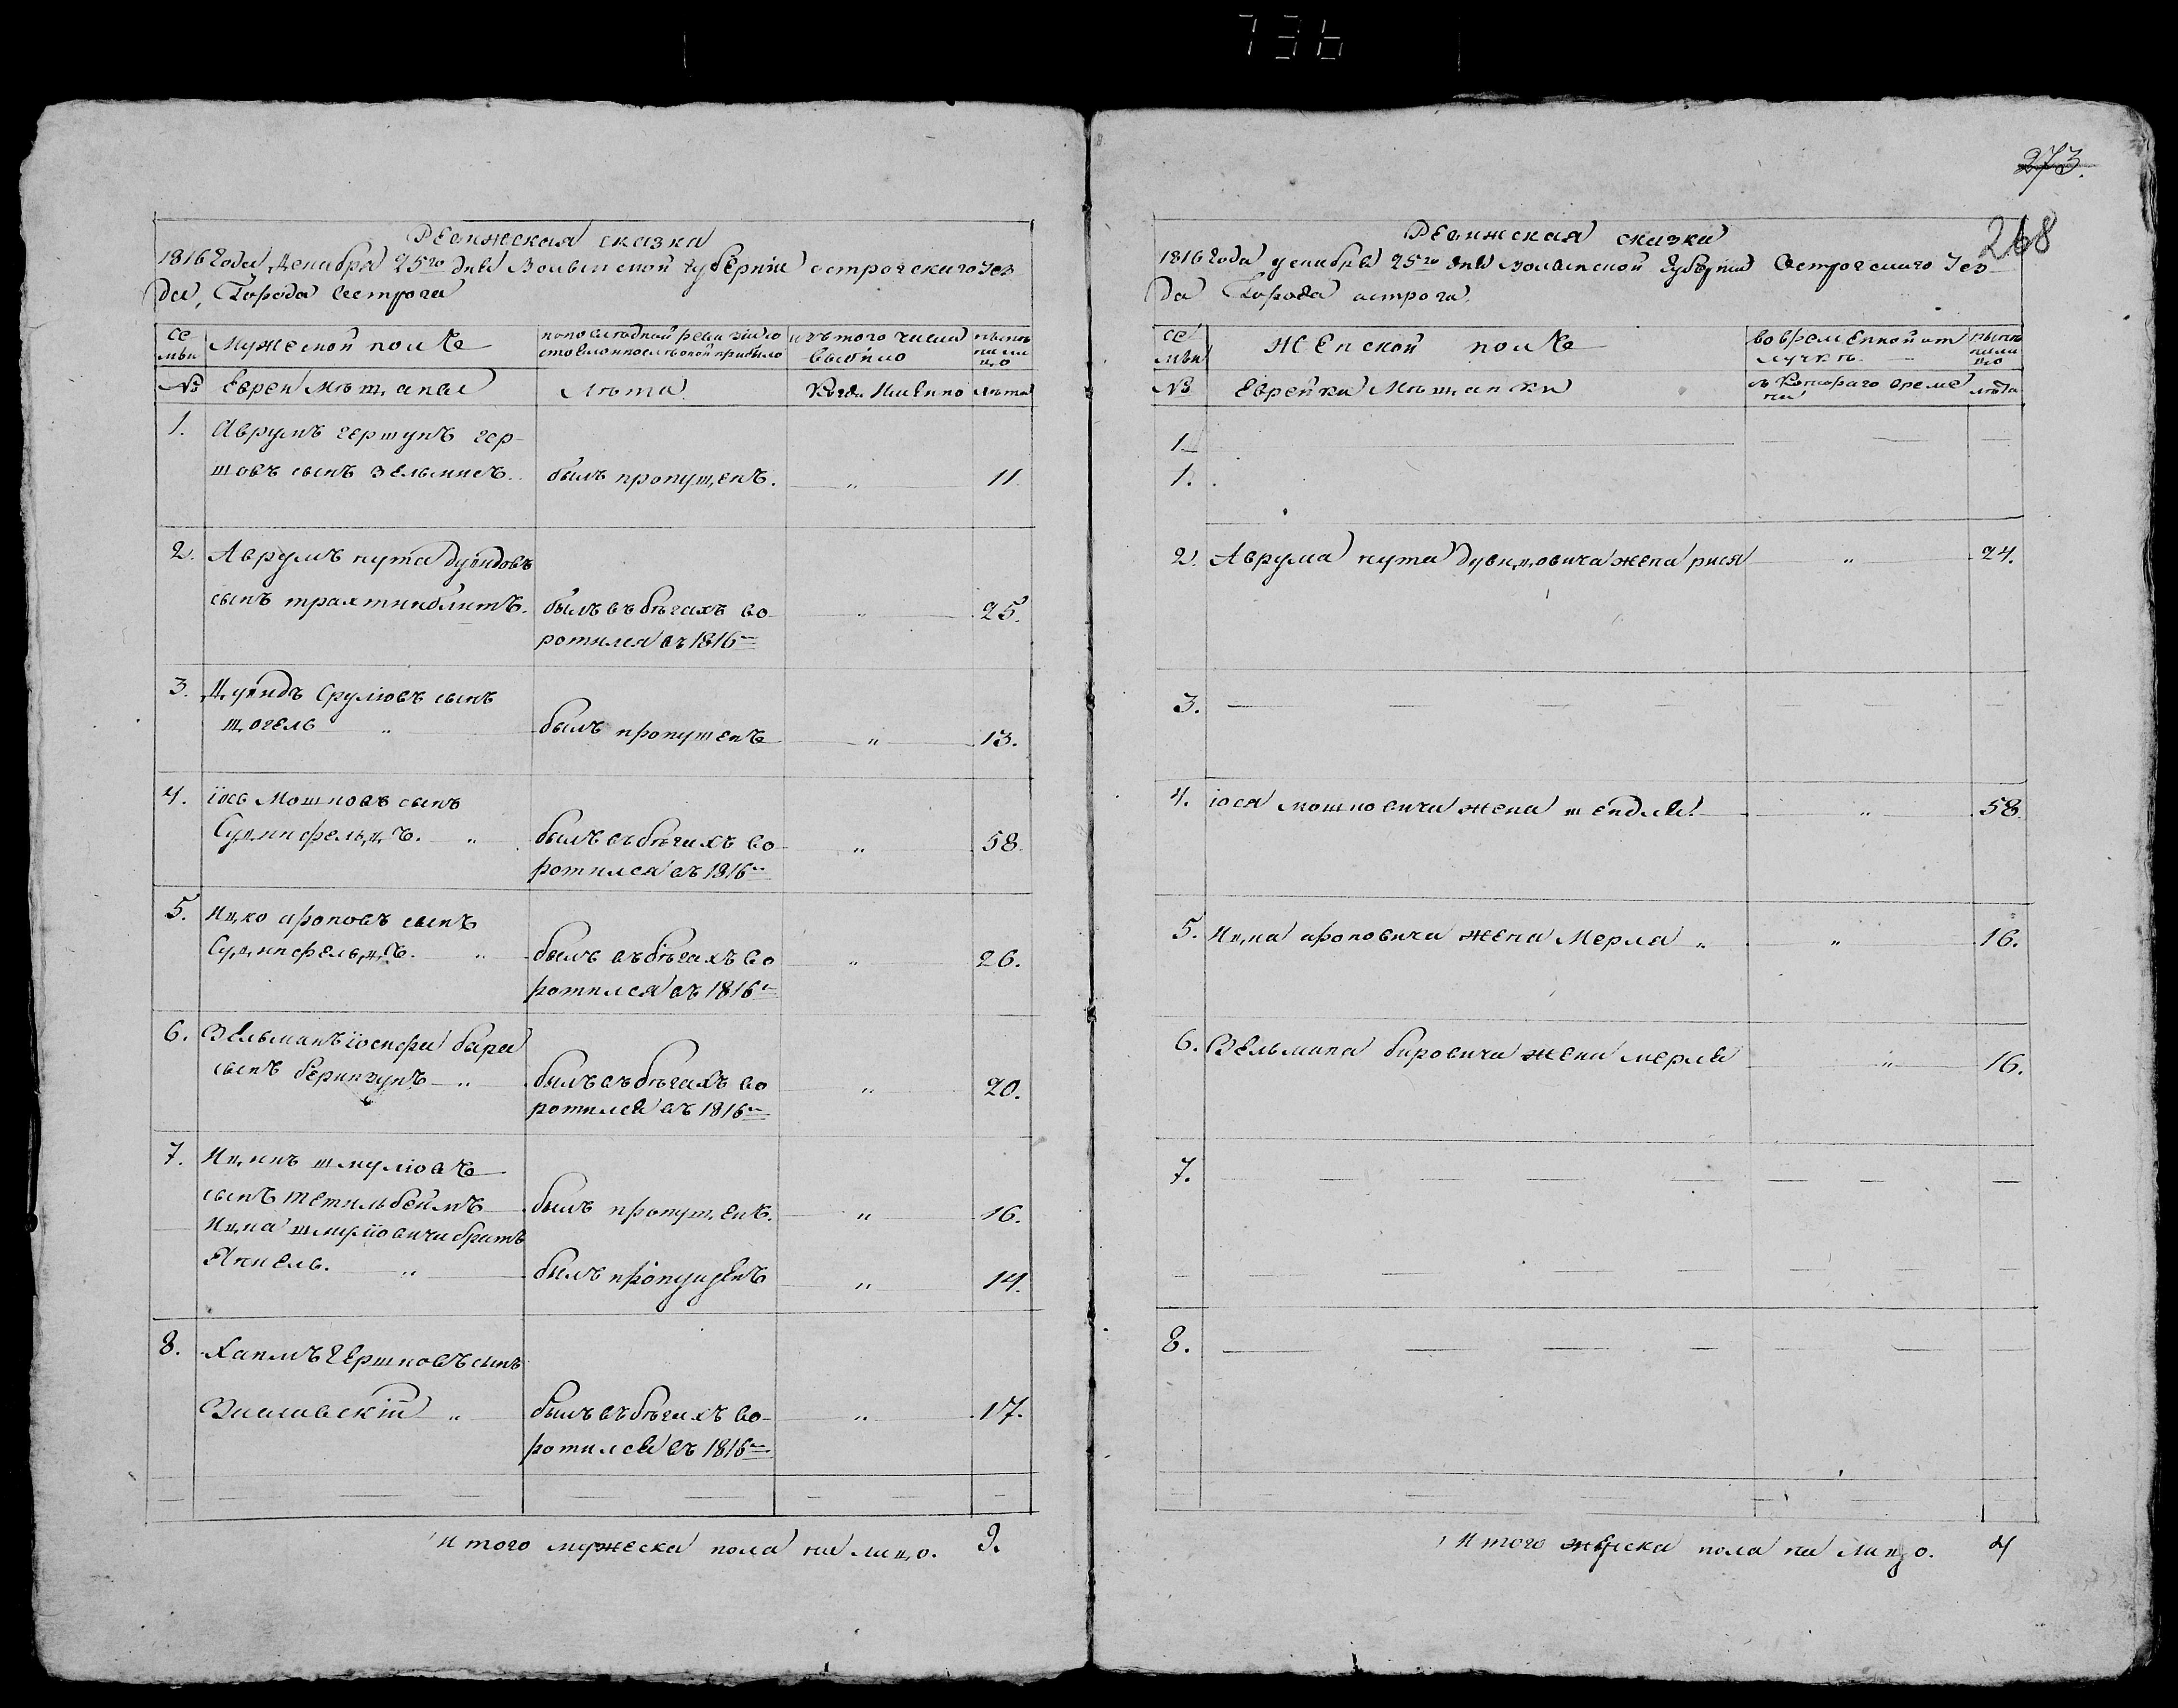 736
273.
268
Ревижская сказка
1816 Года Декабря 25го дня Волынской губернiи острогскаго Уез
да, Города Острога
се мьи
Мужеской полъ
по последной ревизiи со стояло и после оной прибыло
изъ того числа выбыло
ныне на ли цо
№
Евреи Мѣщане
лѣта
Когда Имянно
лѣта
1. Аврумъ гершунъ гер-
шовъ сынъ Зельмисъ.
былъ пропущенъ. " 11
2. Аврумъ нута дувидовъ
сынъ трахтинблитъ. былъ въ бѣгахъ во- " 25.
ротился въ 1816м
3. Дувидъ Срулiовъ сынъ
щогель " былъ пропущенъ " 13.
4. iось Мошковъ сынъ
" былъ въ бѣгахъ во- " 58.
ротился въ 1816м
5. Ицко ароновъ сынъ
" былъ въ бѣгахъ во " 26.
ротился въ 1816м
6. Зельманъ iосифа бера
сынъ беринзунъ " былъ въ бѣгахъ во " 20.
ротился въ 1816м
7. Ицикъ шмулiовъ
сынъ тетильбеймъ былъ пропущенъ. " 16.
Ицка шмулiовича братъ
Янкель. " былъ пропущенъ " 14.
8. Хаимъ Гершковъ сынъ
Заславскiй " былъ въ бѣгахъ во- " 17.
ротился въ 1816м
Итого мужеска пола на лицо. 9.
Ревижская сказка
1816 Года декабря 25го дня волынской Губернiи Острогскаго Уез
да Города острога
се мьи
Женской полъ
во временной от лучкѣ
ныне на ли цо
№
Еврейки Мѣщанки
съ Котораго време ни
лѣта
1
1.
2. Аврума нута дувидовича жена рися " 24.
3.
4. iося мошковича жена шендля " 58.
5. Ицка ароновича жена Мерла " " 16.
6. Зельмана беровича жена мерля " 16.
7.
8.
Итого женска пола на лицо. 4